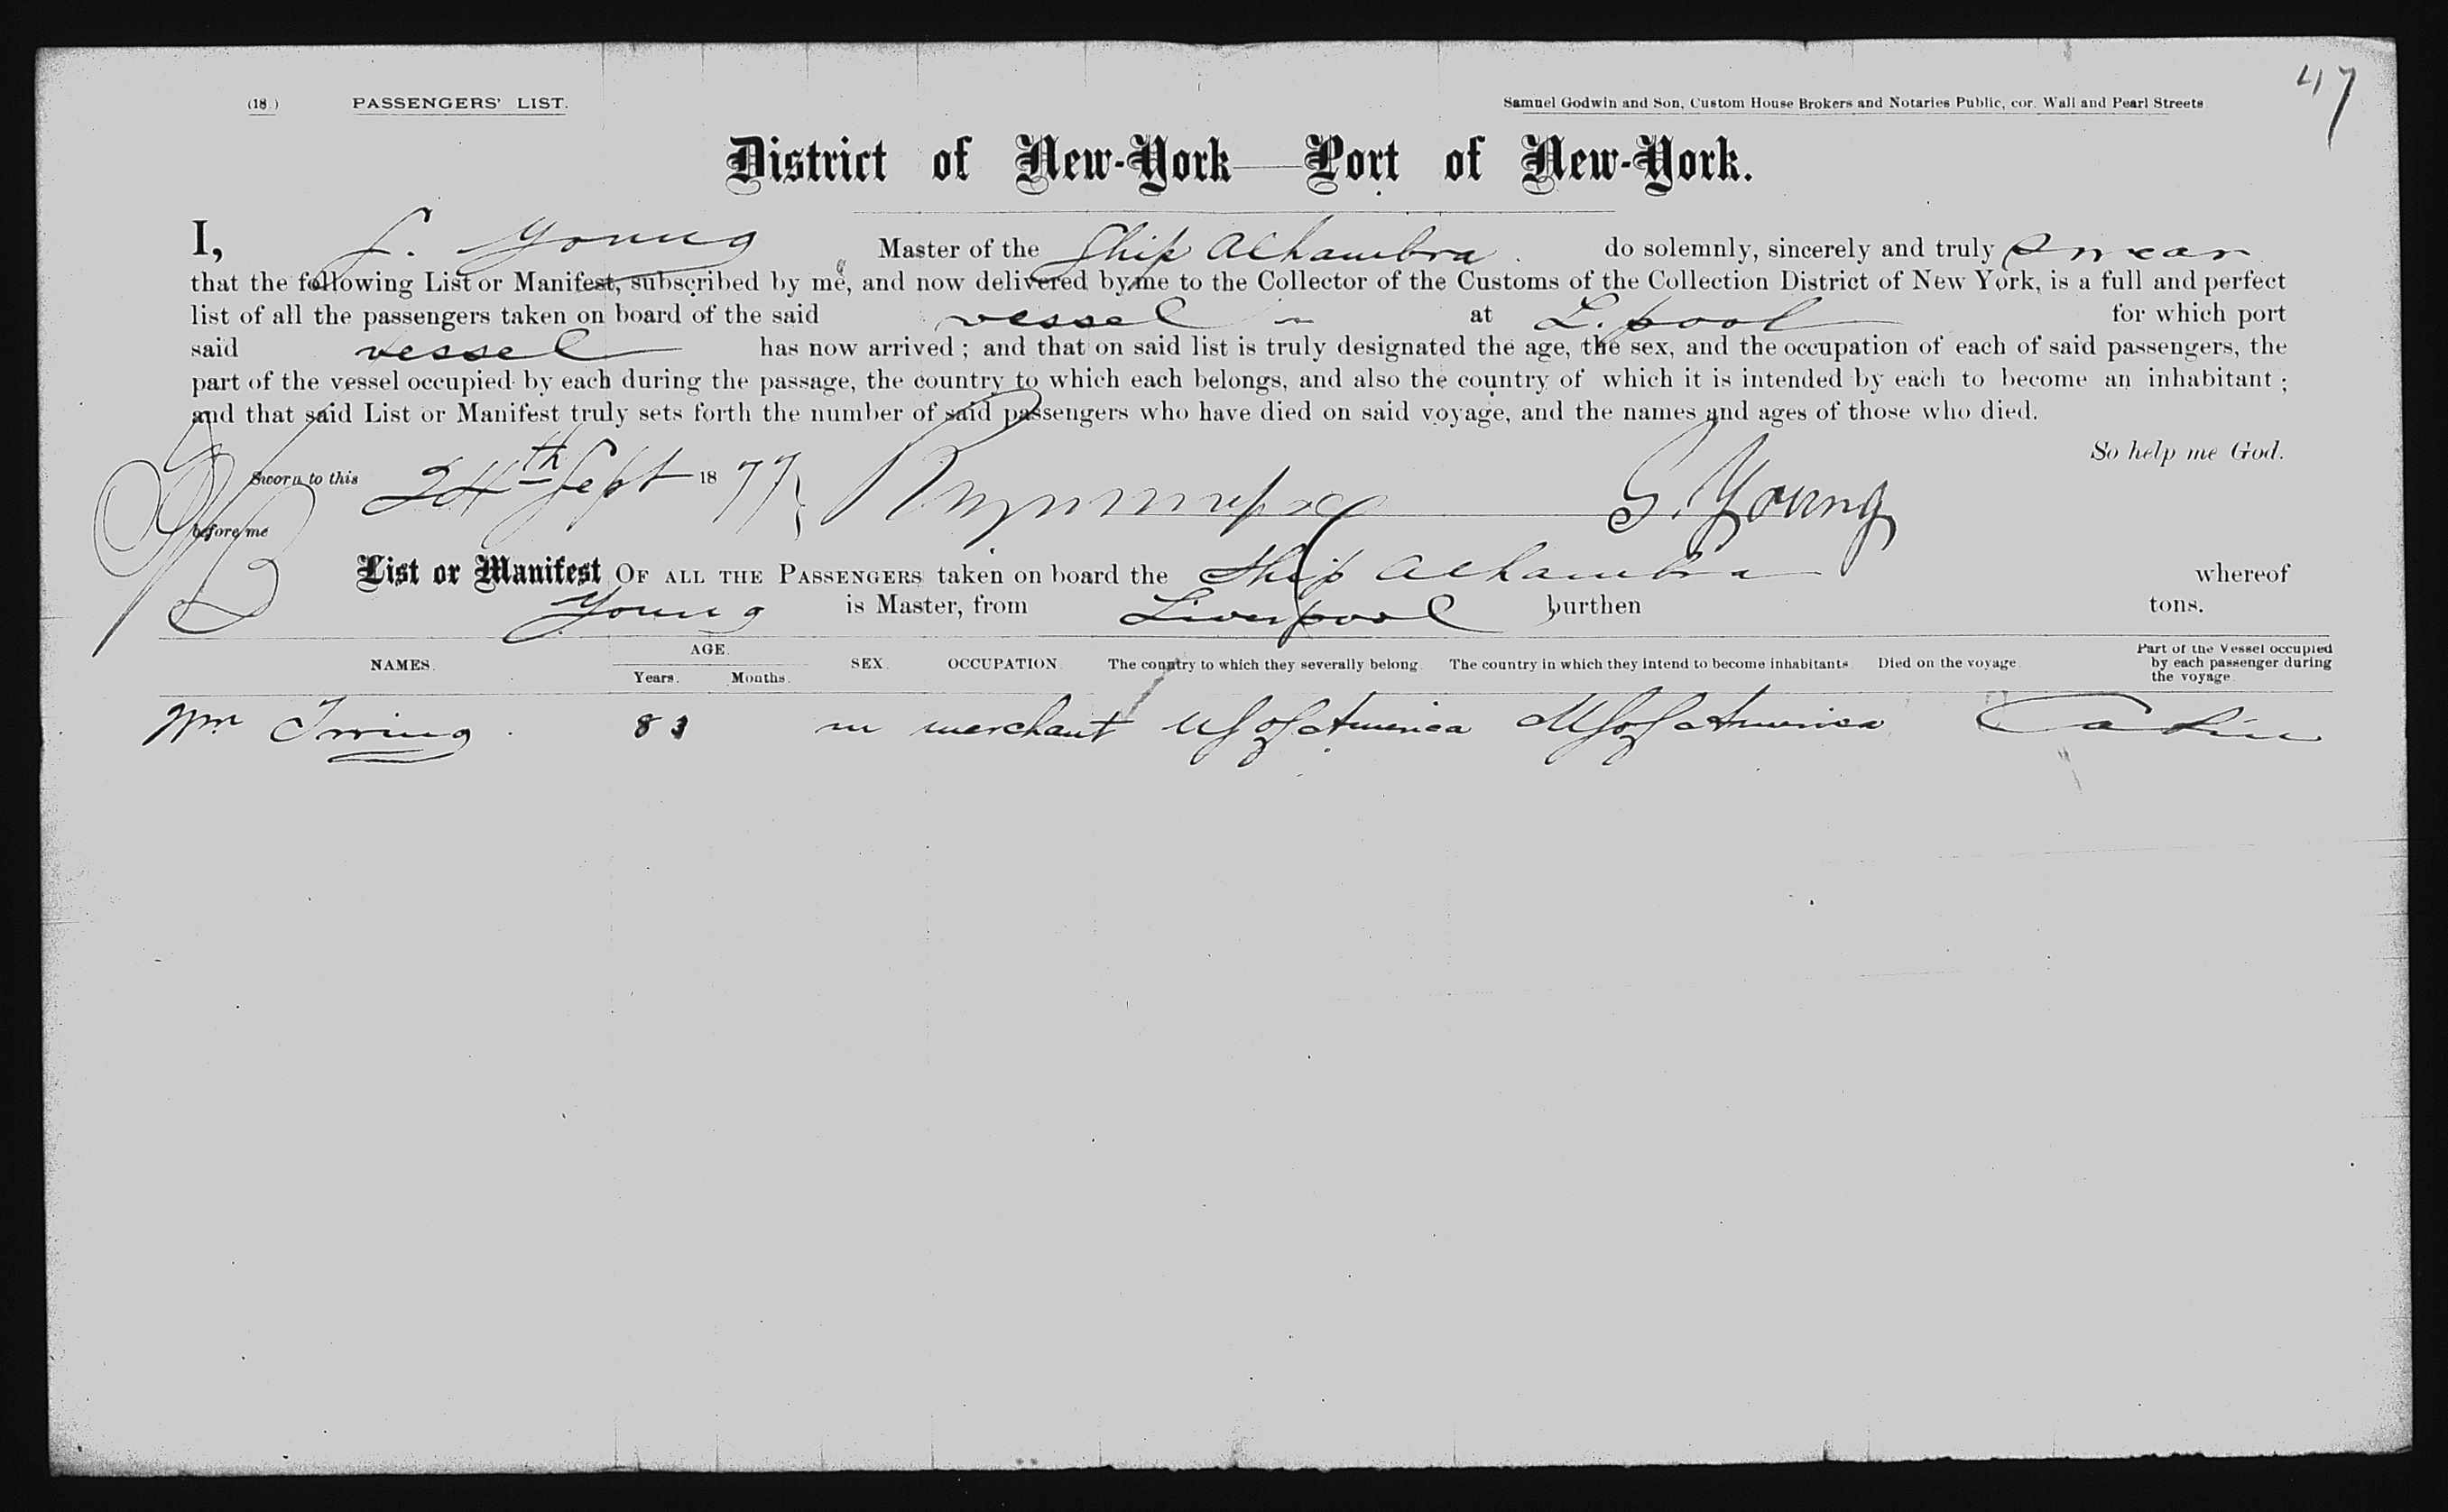 47
(18 ) PASSENGERS' LIST. Samuel Godwin and Son, Custom House Brokers and Notaries Public, cor. Wall and Pearl Streets
District of New-York—Port of New-York.
I, S. Young Master of the Ship Alhambra do solemnly, sincerely and truly swear
that the following List or Manifest, subscribed by me, and now delivered by me to the Collector of the Customs of the Collection District of New York, is a full and perfect
list of all the passengers taken on board of the said vessel at L.pool for which port
said vessel has now arrived ; and that on said list is truly designated the age, the sex, and the occupation of each of said passengers, the
part of the vessel occupied by each during the passage, the country to which each belongs, and also the country of which it is intended by each to become an inhabitant ;
and that said List or Manifest truly sets forth the number of said passengers who have died on said voyage, and the names and ages of those who died.
So help me God.
Sworn to this 24th Sept 1877 } S. Young
before me
List or Manifest OF ALL THE PASSENGERS taken on board the Ship Alhambra whereof
Young is Master, from Liverpool burthen tons.
NAMES. AGE. Years. Months. SEX. OCCUPATION. The country to which they severally belong. The country in which they intend to become inhabitants Died on the voyage. Part of the Vessel occupied by each passenger during the voyage.
Wm Irving 83 m merchant US of America US of America Cabin